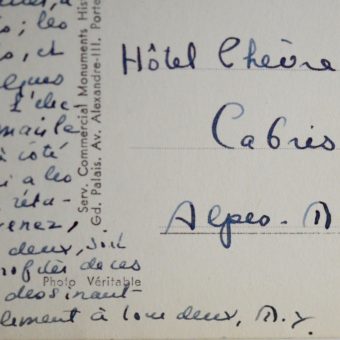 ; les
, et
elques
à côté
i a les
réta-
venez,
deux, soit
de ces
dessinant
lement à tous deux, M.Y.
Serv. Commercial Monuments His
Gd. Palais. Av. Alexandre-III. Porte
Photo Véritable
Hôtel Chèvre
Cabris
Alpes-M